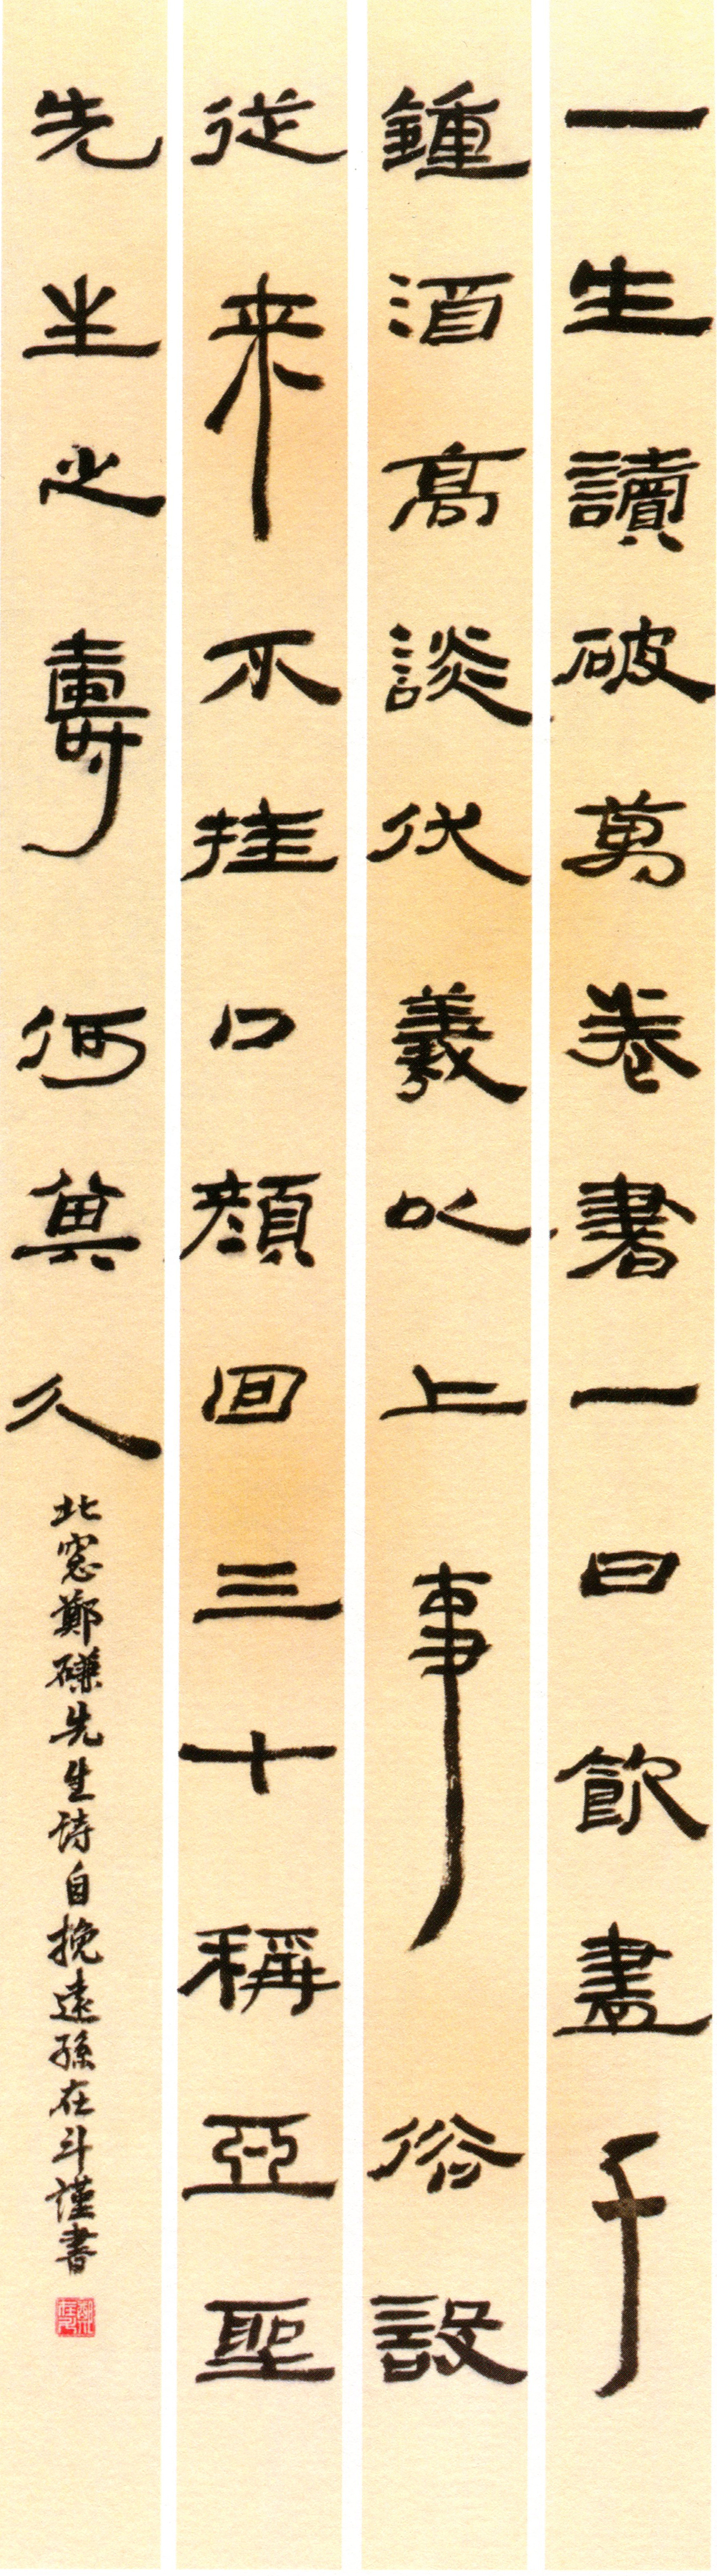 一生讀破萬卷書一日飲盡千
鍾酒高談伏羲以上事俗設
從来不挂口顔回三十稱亞聖
先生之壽何其久
北窓鄭磏先生詩自挽遠孫在斗謹書